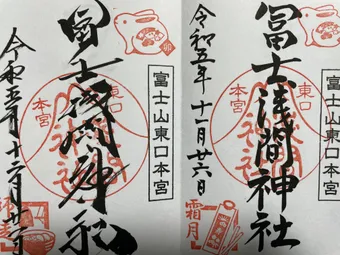 富士山東口本宮
冨士浅間神社
令和五年十一月廿六日
東口
本宮
霜月
富士山東口本宮
冨士浅間神社
東口
本宮
卯